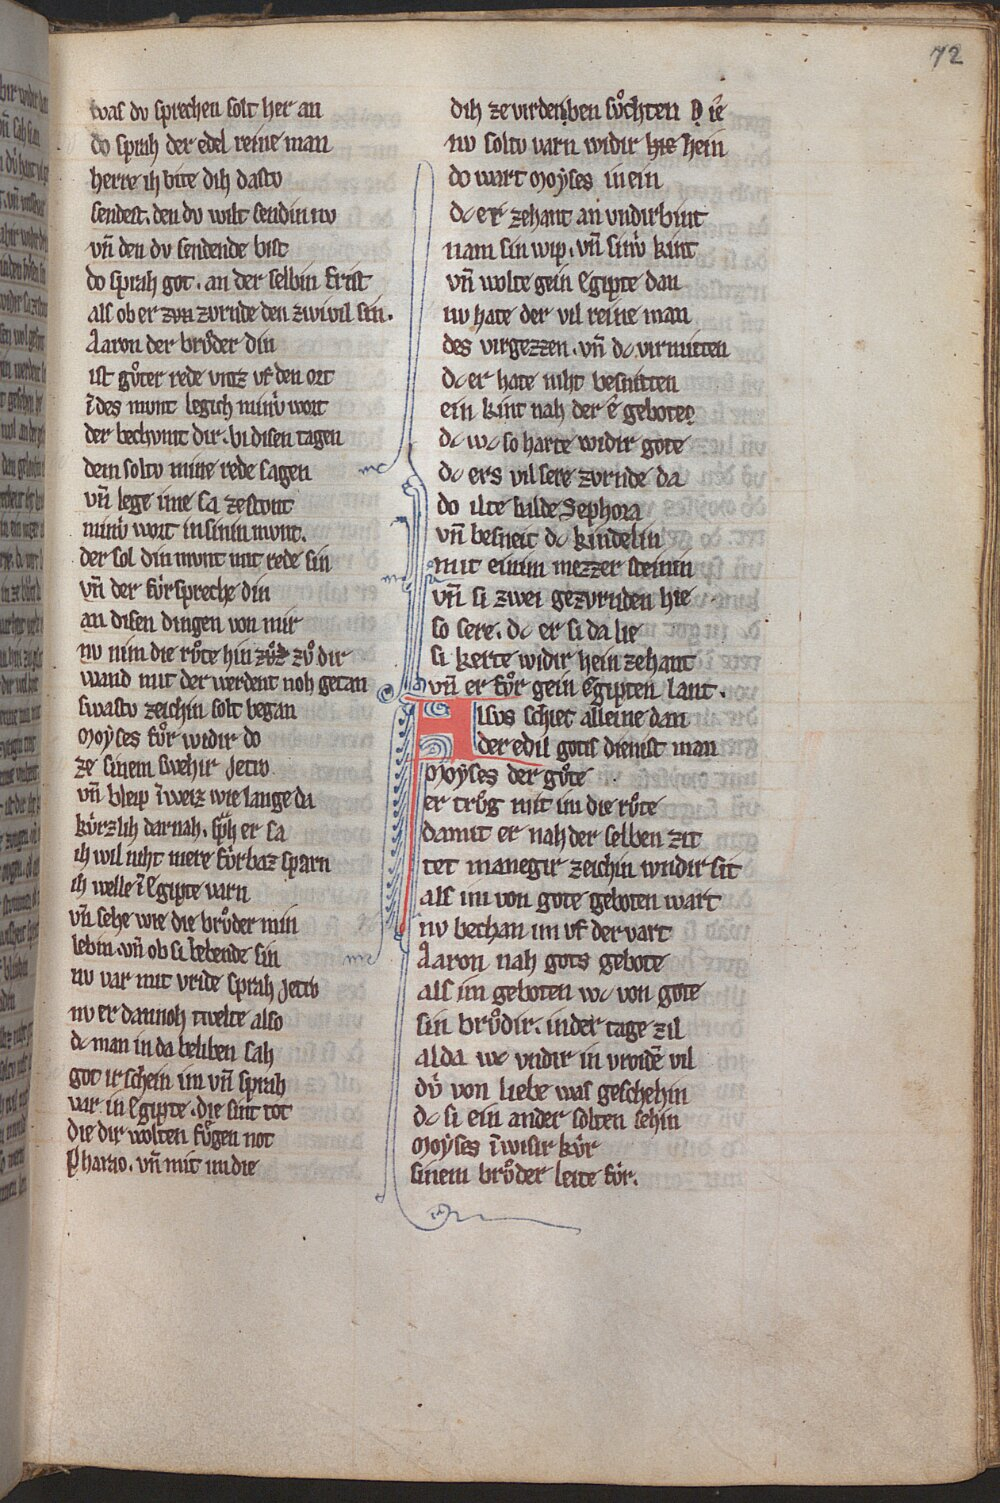 72
was dv sprechen solt her an
do sprah der edel reine man
herre ih bite dih dastv
sendest. den dv wilt sendin nv
vn̄ den dv sendende bist
do sprah got. an der selbin frist
als ob er zvn zvrnde den zwivil sin.
Aaron der brvͦder din
ist gvͦter rede vntz vf den ort
ī des mvnt legich minv̓ wort
der bechvmt dir. bi disen tagen
dem soltv mine rede sagen
vn̄ lege ime sa zestvnt
minv̓ wort in sinin mvnt.
der sol din mvnt mit rede sin
vn̄ der fvͤrspreche din
an disen dingen von mir
nv nim die rvͦte hin zvͦ dir
wand mit der werdent noh getan
swastv zeichin solt began
Moẏses fvͦr widir do
ze sinem swehir Jetro
vn̄ bleip ī weiz wie lange da
kvͤrzlih darnah. sp̄h er sa
ih wil niht mere fvͤrbaz sparn
ih welle ī Egipte varn
vn̄ sehe wie die brvͦder min
lebin. vn̄ ob si lebende sin
nv var mit vride sprah Jetro
nv er dannoh twelte also
dc man in da beliben sah
got irschein im vn̄ sprah
var in Egipte. die sint tot
die dir wolten fvͤgen not
Pharao. vn̄ mit im die
dih ze virderbben svͦchten ie
nv soltv varn widir hein
do wart Moẏses inein
dc er zehant an vndirbint
nam sin wip. vn̄ sinv̓ kint
vn̄ wolte gein Egipte dan
nv hate der vil reine man
des virgezzen. vn̄ dc virmitten
dc er hate niht besnitten
ein kint nah der ē gebote
dc wc so harte widir gote
dc ers vil sere zvrnde da
do ilte balde Sephora
vn̄ besneit dc kindelin
mit einim mezzer steinin
vn̄ si zwei gezvrnden hie
so sere. dc er si da lie
si kerte widir hein zehant
vn̄ er fvͦr gein Egipten lant.
Alsvs schiet alleine dan
der edil gotis dienist man
Moẏses der gvͦte
er trvͦg mit im die rvͦte
damit er nah der selben zit
tet manegir zeichin wndir sit
als im von gote geboten wart
nv bechan im vf der vart
Aaron nah gots gebote
als im geboten wc von gote
sin brvͦdir. in der tage zil
alda wc vndir in vroidē vil
dv̓ von liebe was geschehin
dc si ein ander solten sehin
Moẏses ī wisir kvͤr
sinem brvͦder leite fvͤr.